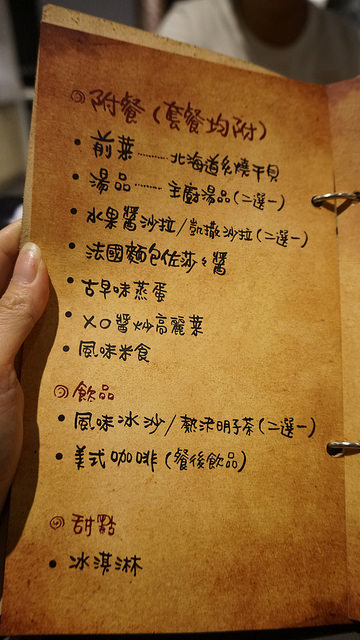 ◎附餐(套餐均附)
•前菜………北海道炙燒干貝
•湯品………主廚湯品(二選一)
•水果醬沙拉/凱撒沙拉(二選一)
•法國麵包佐莎莎醬
•古早味蒸蛋
•XO醬炒高麗菜
•風味米食
◎飲品
•風味冰沙/熱決明子茶(二選一)
•美式咖啡(餐後飲品)
◎甜點
•冰淇淋